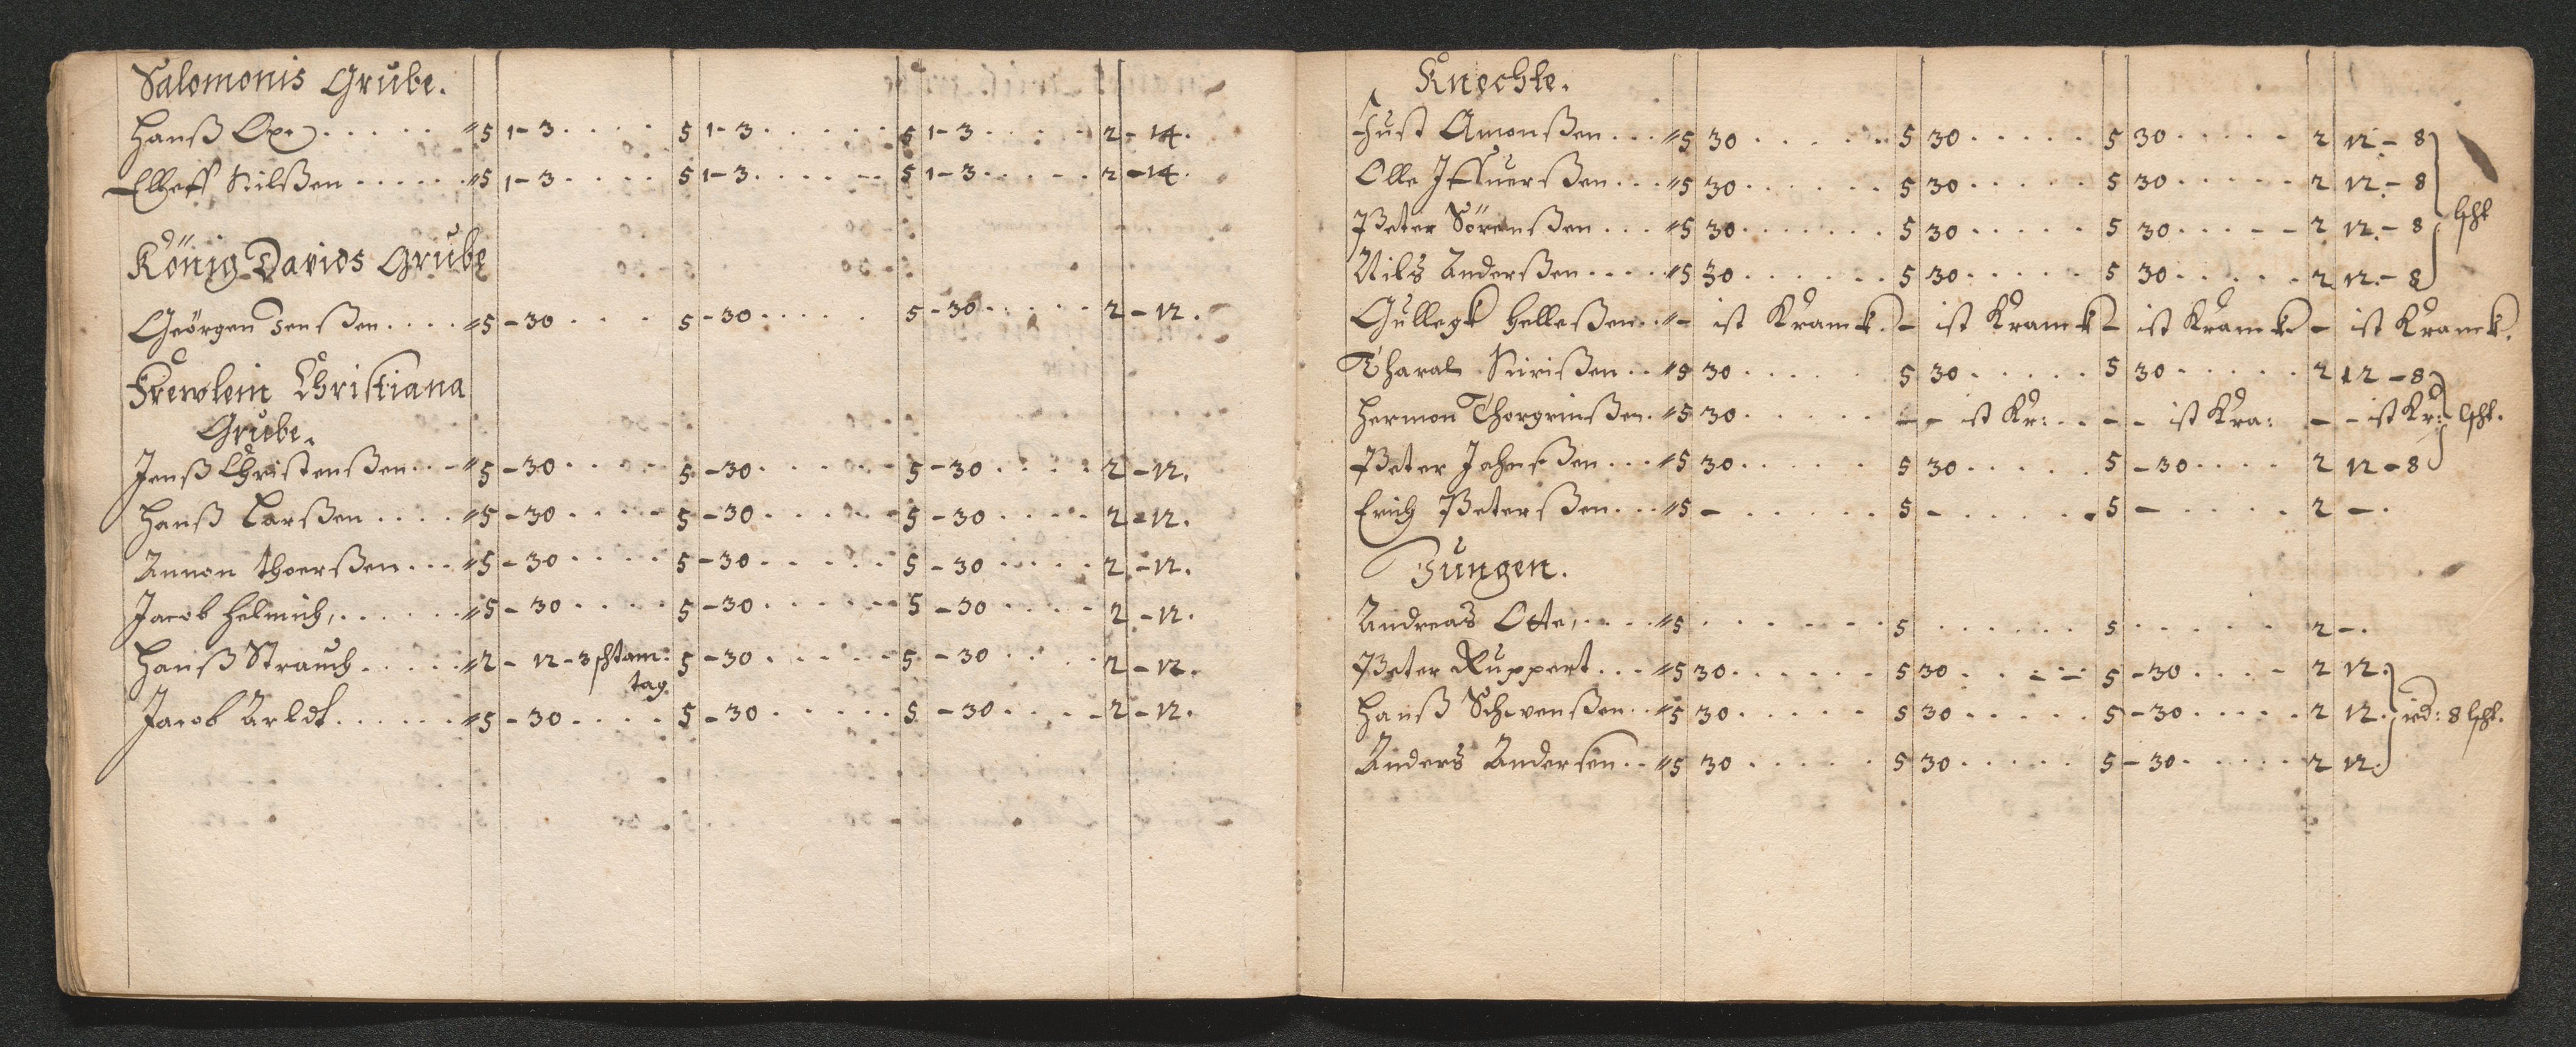 Salomonis Grube.
Hanß Ox ..... "5 1-3 .... 5 1-3 ..... 5 1-3 .... 2 - 14.
Elleff Nilßen ..... "5 1-3 .... 5 1-3 ..... 5 1-3 .... 2 - 14.
König Davids Grube
Geörgen Jenßen .... "5 - 30 .... 5 - 30 ..... 5 - 30 .... 2 - 12.
Frewlein Christiana
Grube.
Jenß Christenßen .. "5 - 30 .... 5 - 30 ..... 5 - 30 .... 2 - 12.
Hanß Larßen .... "5 - 30 .... 5 - 30 ..... 5 - 30 .... 2 - 12.
Annon Thoerßen ... "5 - 30 .... 5 - 30 ..... 5 - 30 .... 2 - 12.
Jacob Helmich, .... "5 - 30 .... 5 - 30 ..... 5 - 30 .... 2 - 12.
Hanß Strauch .... "2 - 12 - 3 5 - 30 ..... 5 - 30 .... 2 - 12.
tag.
Jacob Arldt ..... "5 - 30 .... 5 - 30 ..... 5 - 30 .... 2 - 12.
Knechte.
Just Amonßen ... "5 30 ..... 5 30 ..... 5 30 ..... 2 12 - 8
Olle Iffuerßen ... "5 30 ..... 5 30 ..... 5 30 ..... 2 12 - 8
Peter Sörenßen ... "5 30 ..... 5 30 ..... 5 30 ..... 2 12 - 8 lßht
Nils Anderßen .... "5 30 ..... 5 30 ..... 5 30 ..... 2 12 - 8
Gullegk Helleßen .. "- ist Kranck. - ist Kranck - ist Kranck - ist Kranck.
Tharal Siurißen .. "5 30 ..... 5 30 ..... 5 30 ..... 2 12 - 8
Hermon Thorgrinßen. "5 30 ..... - - ist Kr: .. - - ist Kra: - - ist Kr: lßht.
Peter Jahnßen ... "5 30 ..... 5 30 ..... 5 - 30 .... 2 12 - 8
Erich Peterßen ... "5 - ..... 5 - ..... 5 - ..... 2 - .
Jungen.
Andreas Otte, .... "5 ...... 5 ...... 5 ..... 2 - .
Peter Ruppert ... "5 30 ..... 5 30 ..... 5 - 30 .... 2 12.
Hanß Schwenßen .. "5 30 ..... 5 30 ..... 5 - 30 .... 2 12. id: 8 lßht.
Anders Andersen .. "5 30 ..... 5 30 ..... 5 - 30 .... 2 12.